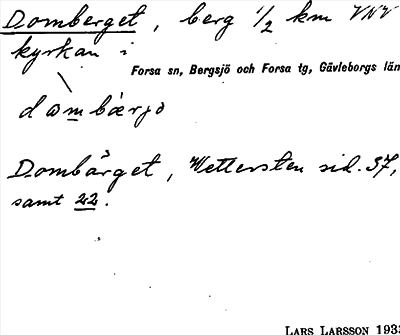 Domberget, berg 1/2 km VNV
kyrkan i
Forsa sn, Bergsjö och Forsa tg, Gävleborgs län
Dombärget, Wettersten sid. 37,
samt 22.
LARS LARSSON 1933